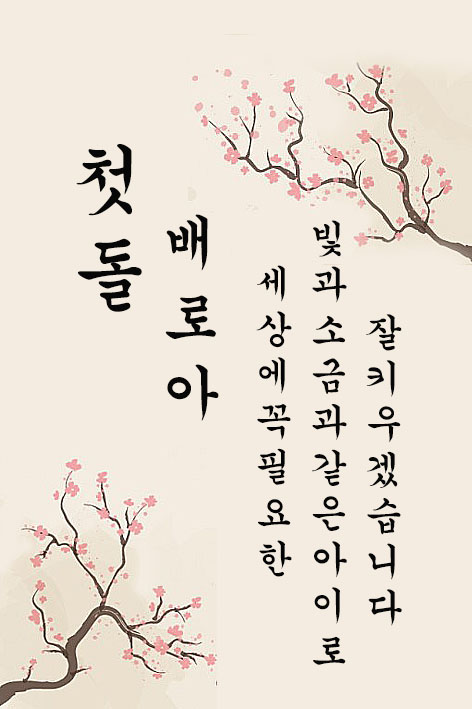 첫돌
배로아
세상에꼭필요한
빛과소금과같은아이로
잘키우겠습니다